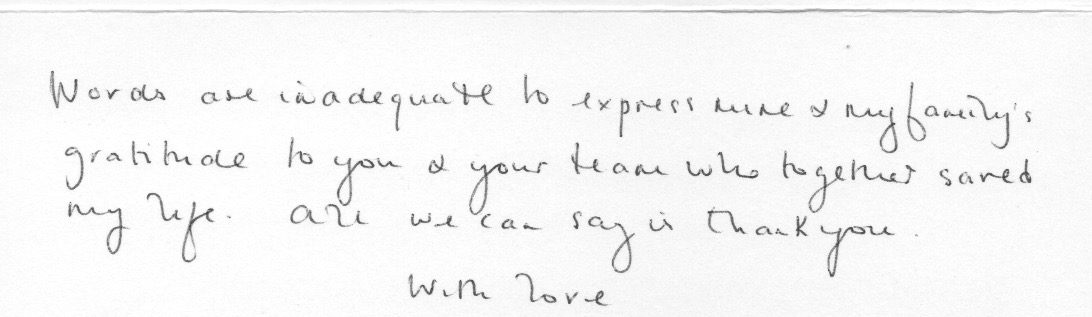 Words are inadequate to express mine & my family's
gratitude to you & your team who together saved
my life. All we can say is thank you.
With love